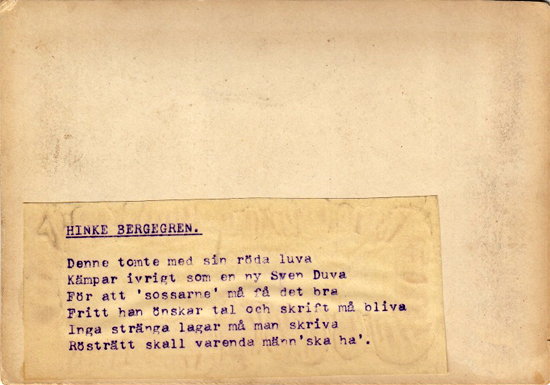 HINKE BERGEGREN.
Denne tomte med sin röda luva
Kämpar ivrigt som en ny Sven Duva
För att 'sossarne' må få det bra
Fritt han önskar tal och skrift må bliva
Inga stränga lagar må man skriva
Rösträtt skall varenda männ'ska ha'.